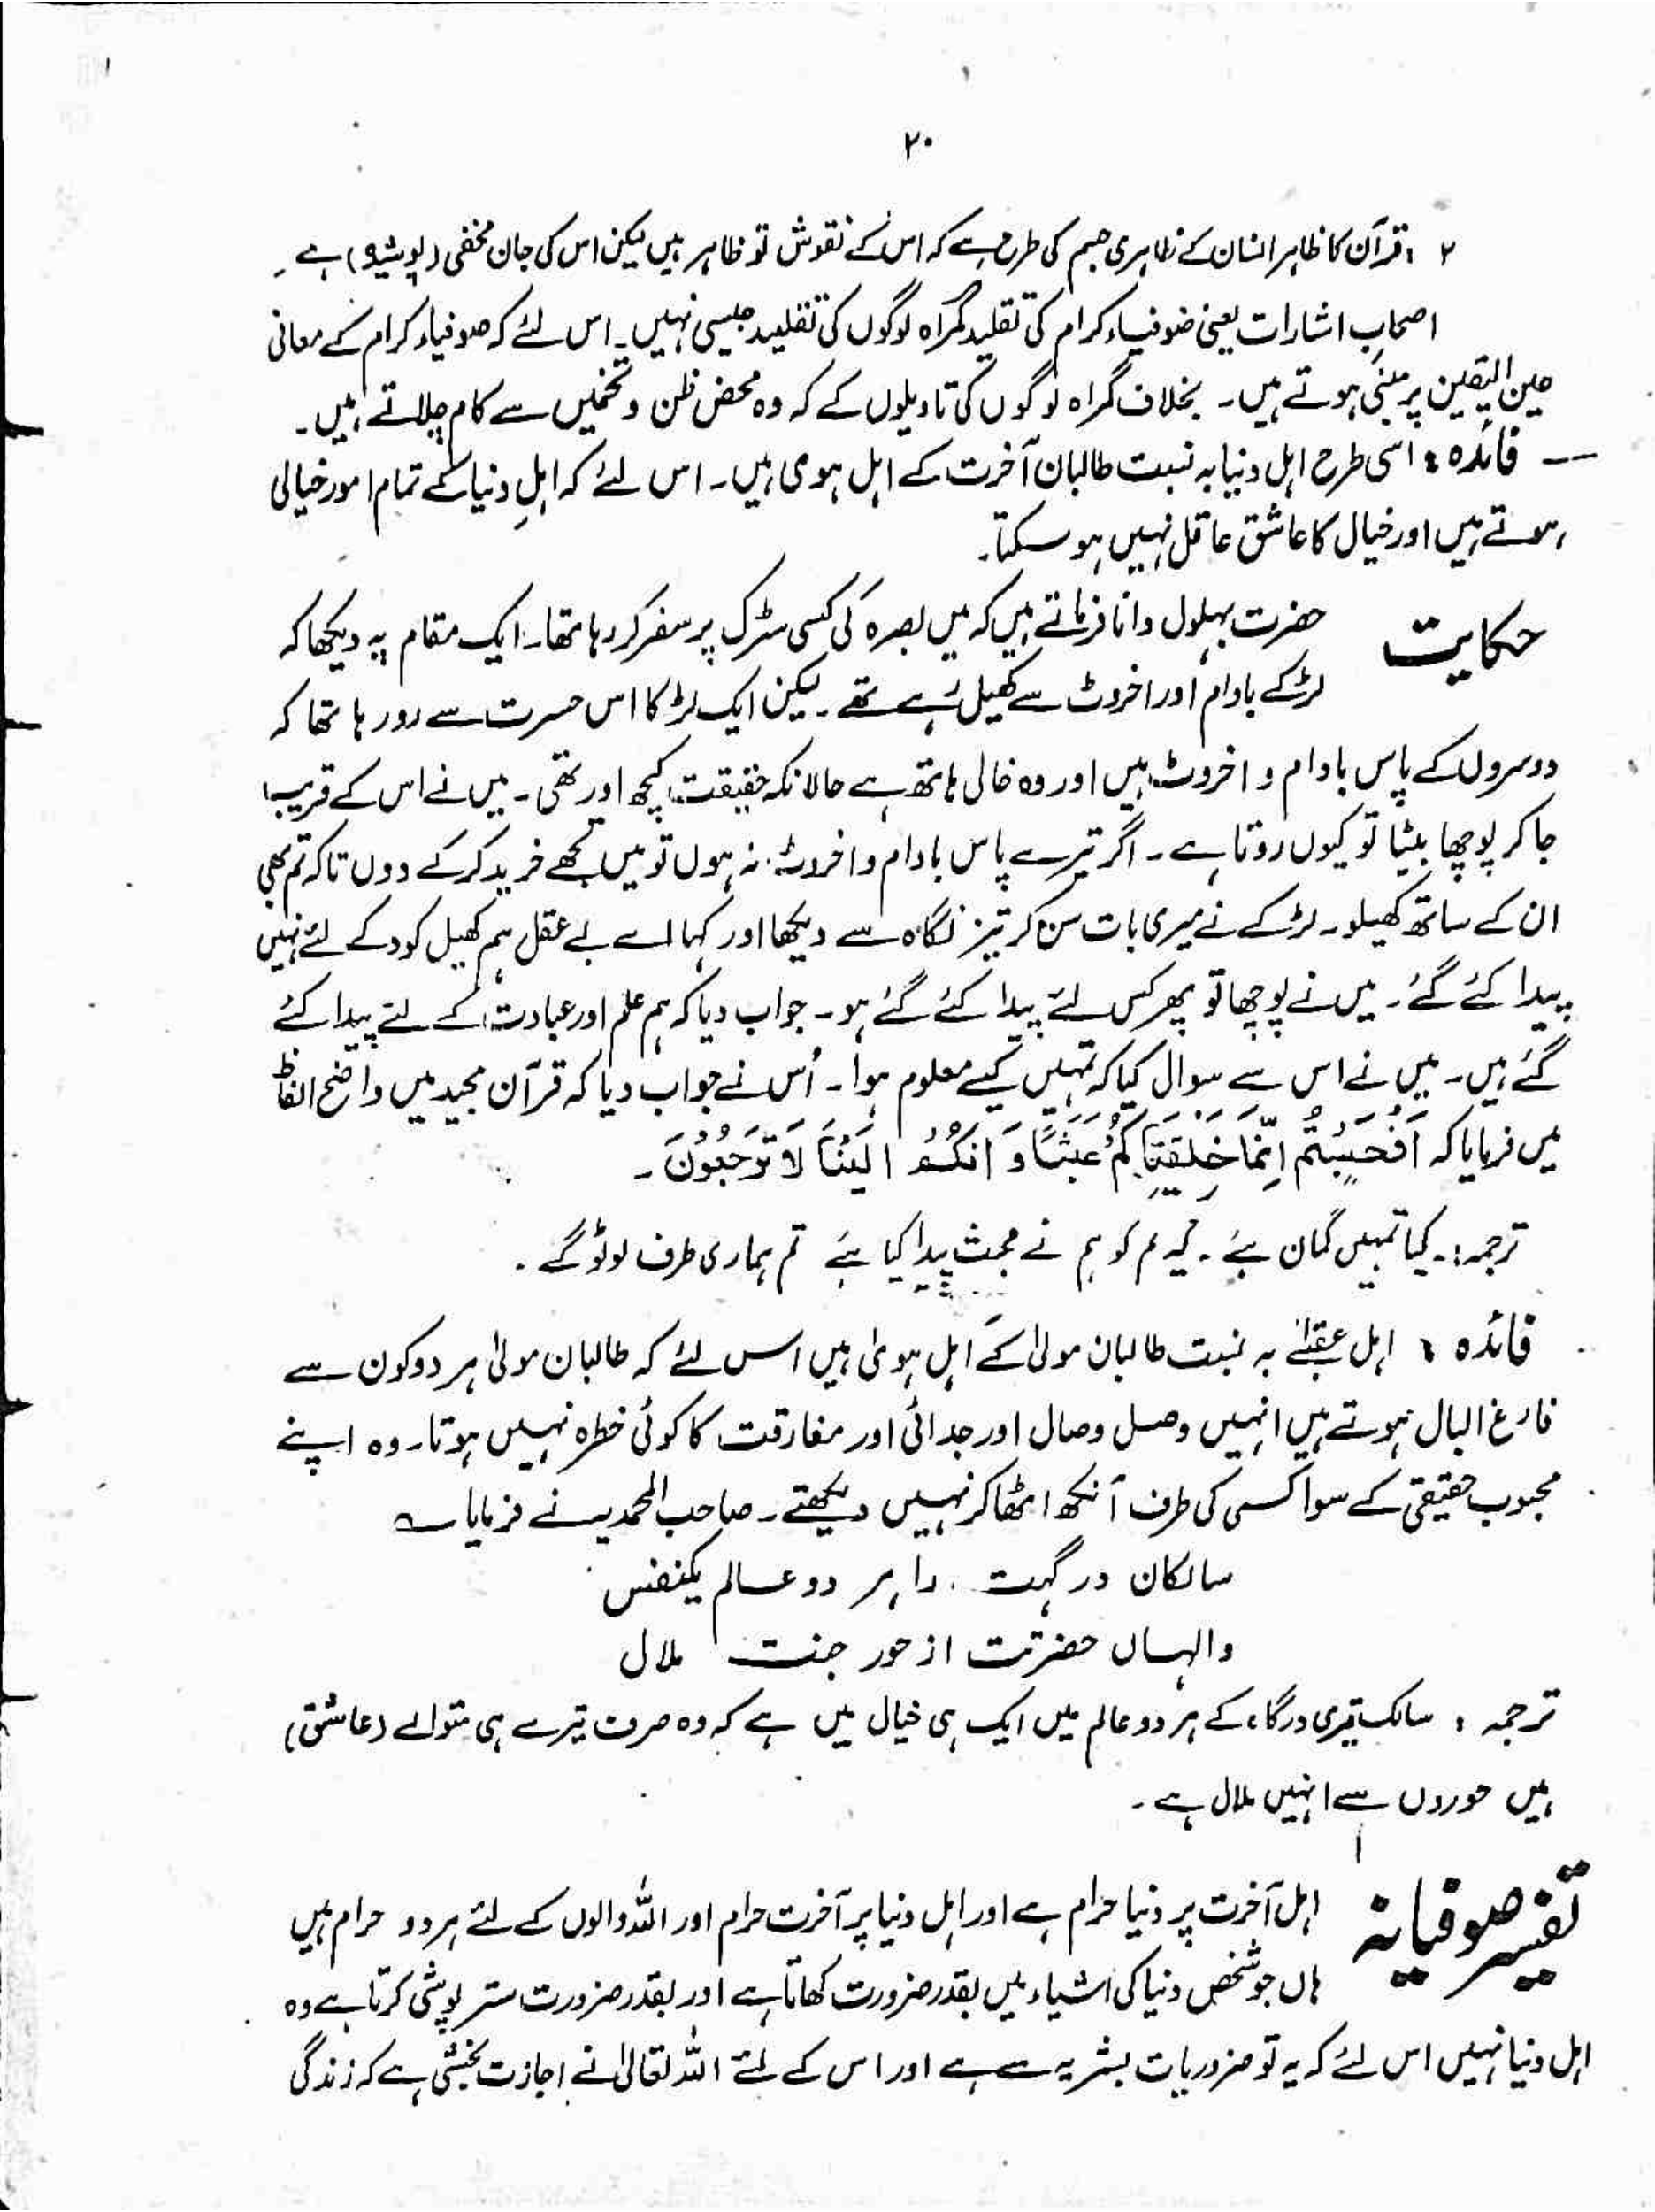 ۲۰
۲ : قرآن کا ظاہر انسان کے ظاہری جسم کی طرح ہے کہ اس کے نقوش تو ظاہر ہیں لیکن اس کی جان مخفی (پوشیدہ) ہے ۔
اصحاب اشارات یعنی صوفیاء کرام کی تقلید گمراہ لوگوں کی تقلید جیسی نہیں۔ اس لئے کہ صوفیاء کرام کے معانی
عین الیقین پر مبنی ہوتے ہیں ۔ بخلاف گمراہ لوگوں کی تاویلوں کے کہ وہ محض ظن و تخمیں سے کام چلاتے ہیں ۔
فائدہ : اسی طرح اہل دنیا بہ نسبت طالبان آخرت کے اہل ہوی ہیں۔ اس لئے کہ اہلِ دنیا کے تمام امور خیالی
ہوتے ہیں اور خیال کا عاشق عاقل نہیں ہو سکتا۔
حکایت
حضرت بہلول دانا فرماتے ہیں کہ میں بصرہ کی کسی سڑک پر سفر کر رہا تھا۔ ایک مقام پہ دیکھا کہ
لڑکے بادام اور اخروٹ سے کھیل رہے تھے ۔ لیکن ایک لڑکا اس حسرت سے رو رہا تھا کہ
دوسروں کے پاس بادام و اخروٹ ہیں اور وہ خالی ہاتھ ہے حالانکہ حقیقت کچھ اور تھی ۔ میں نے اس کے قریب
جا کر پوچھا بیٹا تو کیوں روتا ہے ۔ اگر تیرے پاس بادام و اخروٹ نہ ہوں تو میں تجھے خرید کر کے دوں تاکہ تم بھی
ان کے ساتھ کھیلو ۔ لڑکے نے میری بات سن کر تیز نگاہ سے دیکھا اور کہا اے بے عقل ہم کھیل کود کے لئے نہیں
پیدا کئے گئے ۔ میں نے پوچھا تو پھر کس لئے پیدا کئے گئے ہو ۔ جواب دیا کہ ہم علم اور عبادت کے لئے پیدا کئے
گئے ہیں ۔ میں نے اس سے سوال کیا کہ تمہیں کیسے معلوم ہوا ۔ اُس نے جواب دیا کہ قرآن مجید میں واضح الفاظ
میں فرمایا کہ اَفَحَسِبْتُمْ اِنَّمَا خَلَقْنَاكُمْ عَبَثًا وَ اَنَّكُمْ اِلَيْنَا لَا تُرْجَعُوْنَ ۔
ترجمہ :۔ کیا تمہیں گمان ہے ۔ کہ تم کو ہم نے عبث پیدا کیا ہے تم ہماری طرف لوٹو گے ۔
فائدہ : اہل عقبےٰ بہ نسبت طالبان مولیٰ کے اہل ہویٰ ہیں اس لئے کہ طالبان مولیٰ ہر دو کون سے
فارغ البال ہوتے ہیں انہیں وصل وصال اور جدائی اور مفارقت کا کوئی خطرہ نہیں ہوتا ۔ وہ اپنے
محبوب حقیقی کے سوا کسی کی طرف آنکھ اٹھا کر نہیں دیکھتے ۔ صاحب المحمدیہ نے فرمایا ؎
سالکان درگہت را ہر دو عالم یکنفس
والہاں حضرتت از حور جنت ملال
ترجمہ : سالک تیری درگاہ کے ہر دو عالم میں ایک ہی خیال میں ہے کہ وہ صرف تیرے ہی متوالے (عاشق)
ہیں حوروں سے انہیں ملال ہے ۔
تفسیر صوفیانہ
اہل آخرت پر دنیا حرام ہے اور اہل دنیا پر آخرت حرام اور اللہ والوں کے لئے ہر دو حرام ہیں
ہاں جو شخص دنیا کی اشیاء میں بقدر ضرورت کھاتا ہے اور بقدر ضرورت ستر پوشی کرتا ہے وہ
اہل دنیا نہیں اس لئے کہ یہ تو ضروریات بشریہ سے ہے اور اس کے لئے اللہ تعالیٰ نے اجازت بخشی ہے کہ زندگی